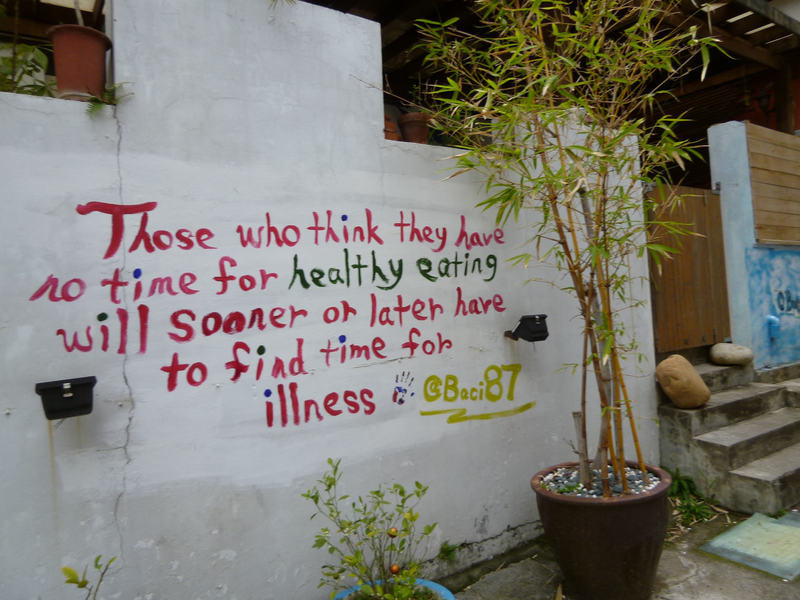 Those who think they have
no time for healthy eating
will sooner or later have
to find time for
illness @Baci87